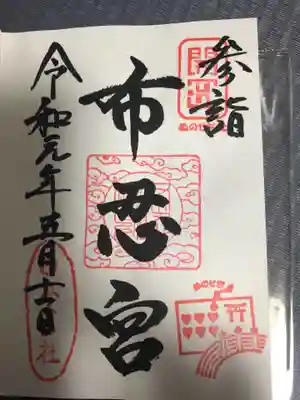 参詣
開運
ぬのせ
布忍宮
令和元年五月十一日
社